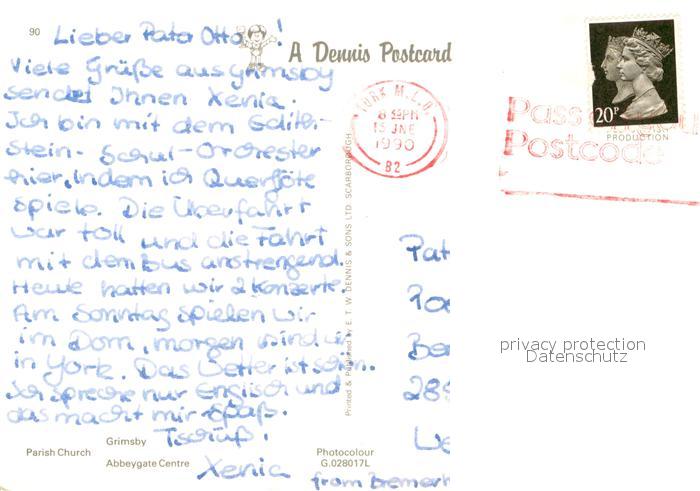 90
Lieber Pater Otto!
A Dennis Postcard
Viele Grüße aus Grimsby
sendet Ihnen Xenia.
Ich bin mit dem Edith-
Stein-Schul-Orchester
hier, indem ich Querflöte
spiele. Die Überfahrt
war toll und die Fahrt
mit dem Bus anstrengend.
Heute hatten wir 2 Konzerte.
Am Sonntag spielen wir
im Dom, morgen sind
in York. Das Wetter ist schön.
Ich spreche nur Englisch und
das macht mir Spaß.
Tschüß!
Xenia
Parish Church
Grimsby
Abbeygate Centre
Photocolour
G.028017L
Printed & Published by E. T. W. DENNIS & SONS LTD. SCARBOROUGH
YORK M.L.O.
8 PM
15 JNE
1990
B2
20P
Pass
Postcode
PRODUCTION
Pat
Ber
from Bremerh
privacy protection
Datenschutz